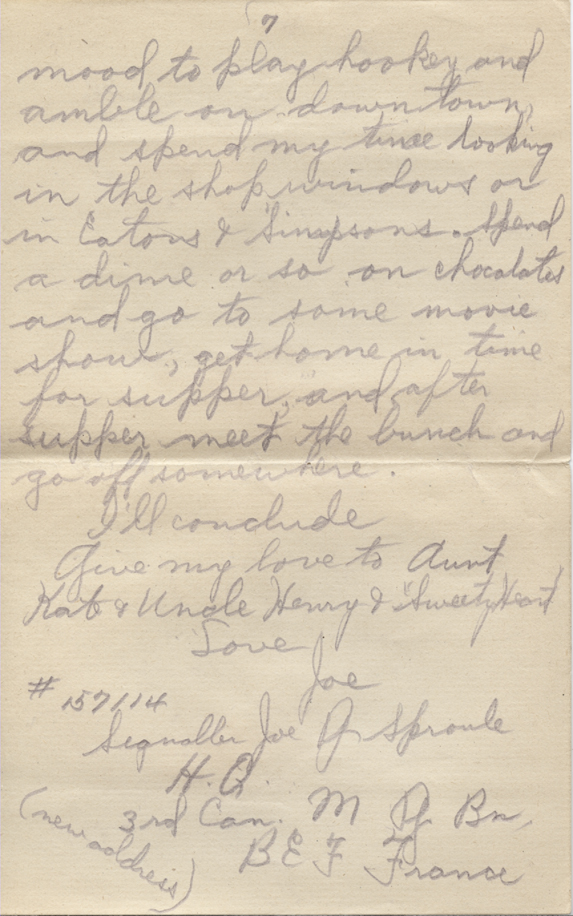 7
mood to play hookey and
amble on down town,
and spend my time looking
in the shop windows or
in Eatons & Simpsons. Spend
a dime or so on chocolates
and go to some movie
show, get home in time
for supper, and after
supper meet the bunch and
go off somewhere.
I'll conclude
Give my love to Aunt
Kate & Uncle Henry & "Sweety Heart"
Love
Joe
# 157114
Signaller Joe A Sproule
H.Q.
3rd Can. M G Bn,
(new address)
BEF France